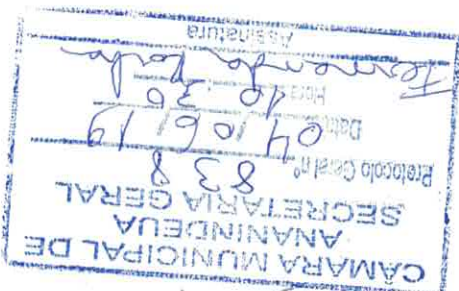 CÂMARA MUNICIPAL DE
ANANINDEUA
SECRETARIA GERAL
Protocolo Geral nº 838
Data 04/06/19
Hora 10:30
Fernanda
Assinatura